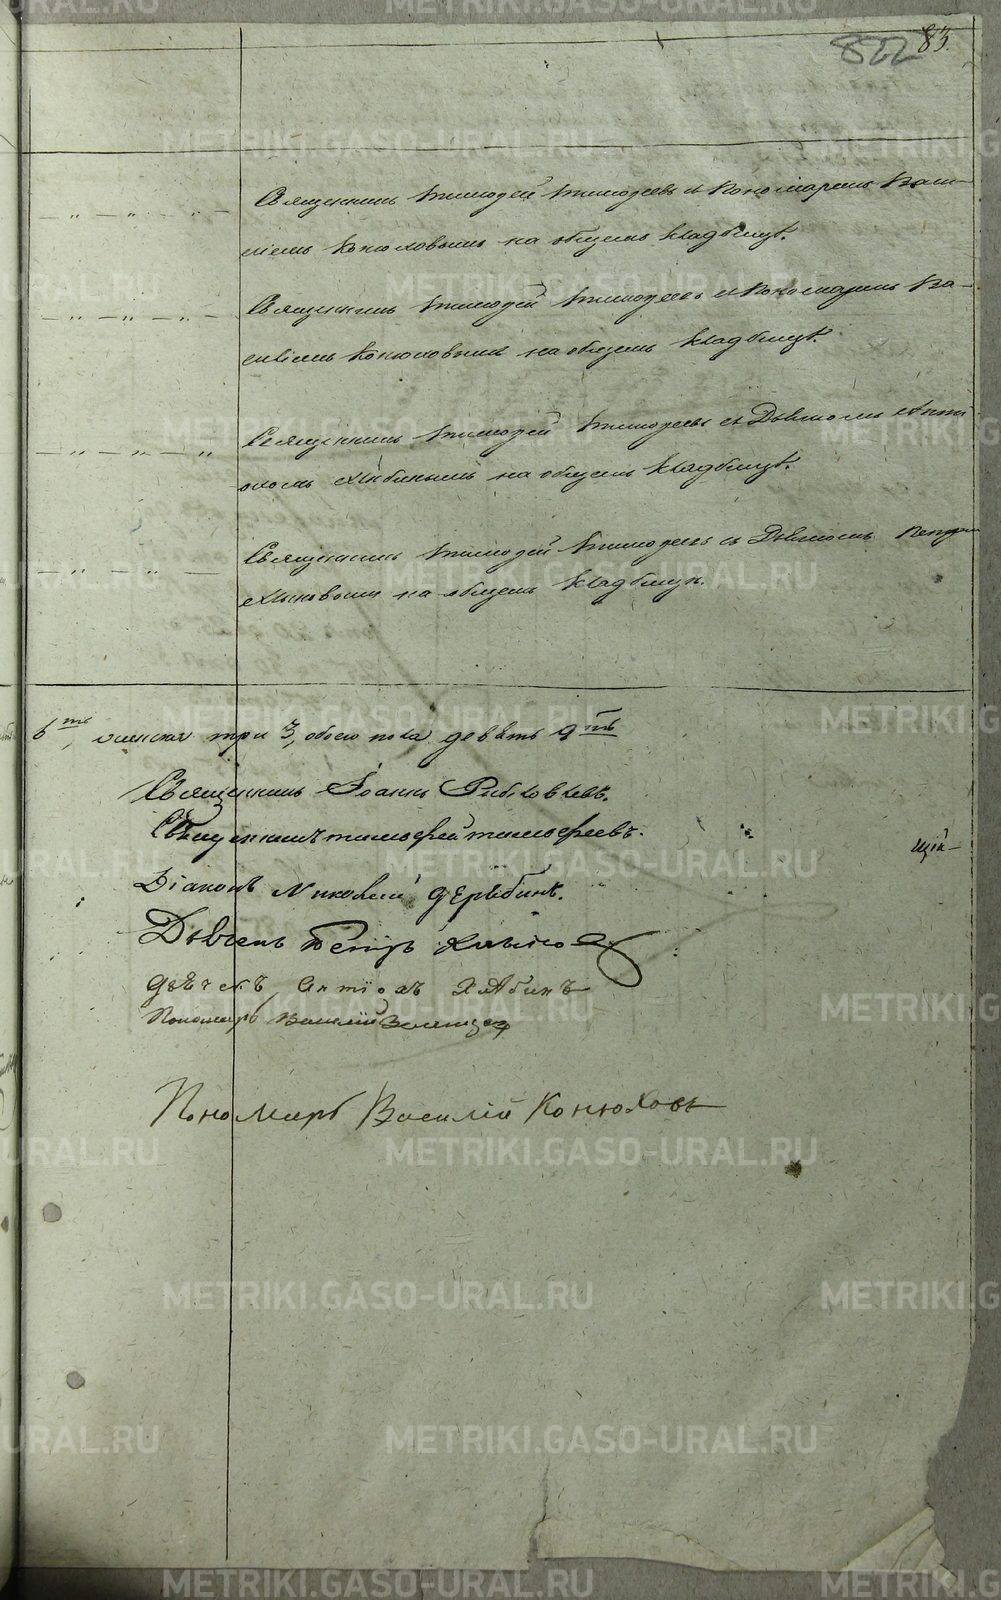 822 83.
Священникъ Тимофей Тимофеевъ съ Пономаремъ Васи-
ліемъ Конюховымъ на общемъ кладбищѣ.
Священникъ Тимофей Тимофеевъ съ Пономаремъ Ва-
силіемъ Конюховымъ на общемъ кладбищѣ.
Священникъ Тимофей Тимофеевъ съ Дьячкомъ Анти
охомъ Хлябинымъ на общемъ кладбищѣ.
Священникъ Тимофей Тимофеевъ съ Дьячкомъ Петромъ
на общемъ кладбищѣ.
6ть, женска три 3, обоего пола девять 9ть
Священникъ Іоаннъ
Священникъ Тимофей Тимофеевъ.
щій
Діаконъ Николай Дерябинъ.
Дьячекъ Петръ
Дьячекъ Антіохъ Хлябинъ
Пономарь Василій
Пономарь Василій Конюховъ
METRIKI.GASO-URAL.RU